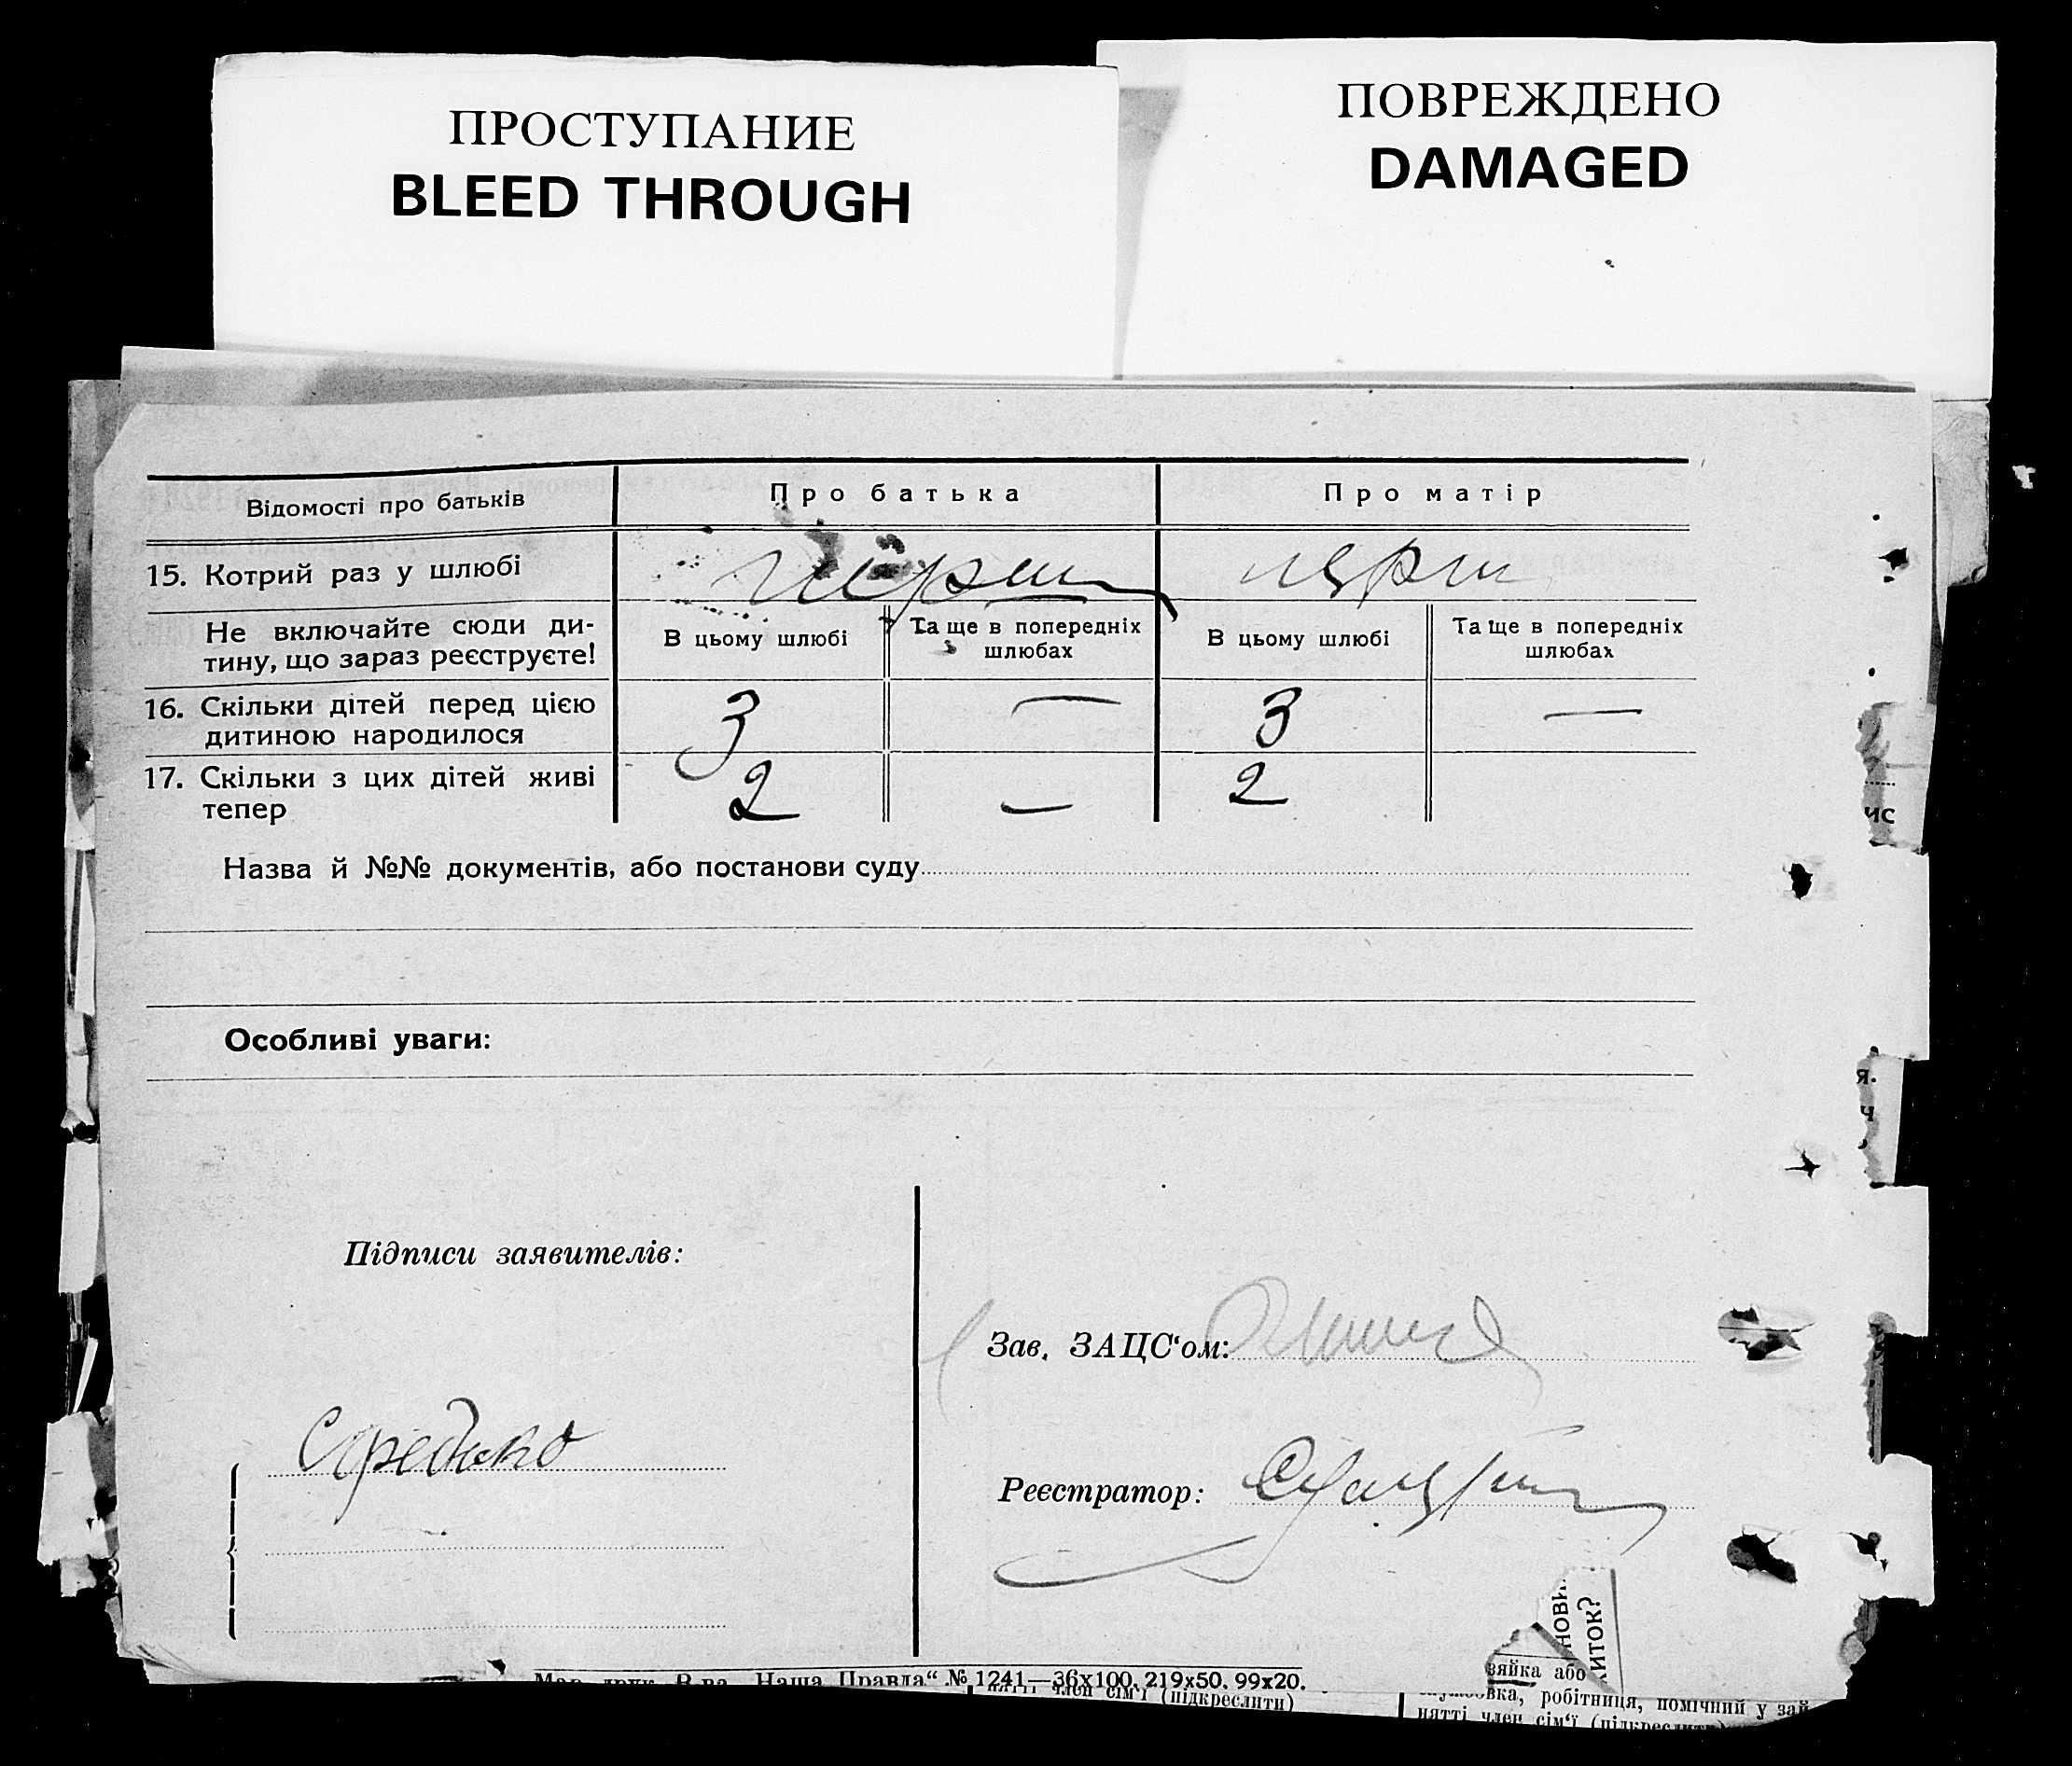 ПРОСТУПАНИЕ
BLEED THROUGH
ПОВРЕЖДЕНО
DAMAGED
Відомості про батьків
Про батька
Про матір
15. Котрий раз у шлюбі
перш
перш
Не включайте сюди ди-
тину, що зараз реєструєте!
В цьому шлюбі
Та ще в попередніх
шлюбах
В цьому шлюбі
Та ще в попередніх
шлюбах
16. Скільки дітей перед цією
дитиною народилося
3
—
3
—
17. Скільки з цих дітей живі
тепер
2
—
2
Назва й №№ документів, або постанови суду
Особливі уваги:
Підписи заявителів:
Зав. ЗАЦС‘ом:
Реєстратор:
„Наша Правда“ № 1241—36х100. 219х50. 99х20.
член сім‘ї (підкреслити)
зяйка або
вка, робітниця, помічний у зай
нятті член сім‘ї (підкреслити)
нови
житок?
ис
я.
ч